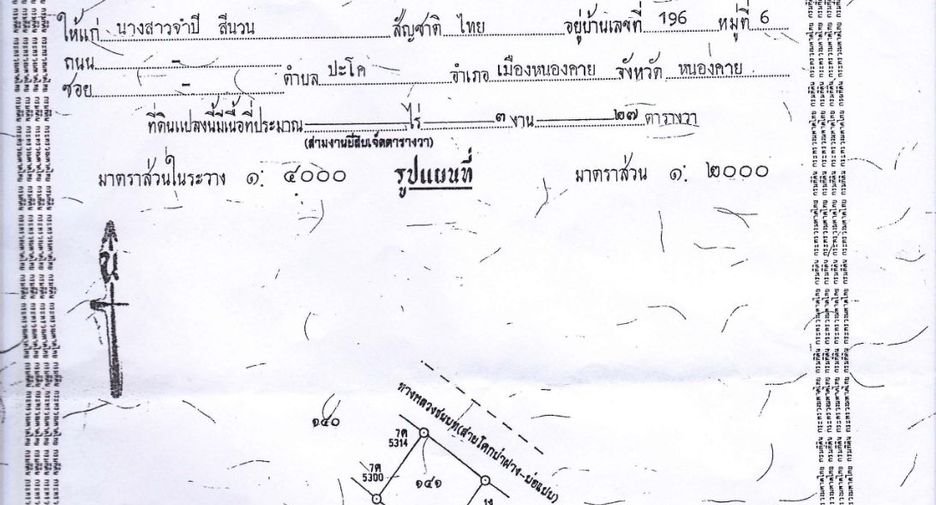 ให้แก่ นางสาวจำปี สีนวน สัญชาติ ไทย อยู่บ้านเลขที่ 196 หมู่ที่ 6
ถนน - ตำบล ปะโค อำเภอ เมืองหนองคาย จังหวัด หนองคาย
ซอย -
ที่ดินแปลงนี้มีเนื้อที่ประมาณ ไร่ ๓ งาน ๒๗ ตารางวา
(สามงานยี่สิบเจ็ดตารางวา)
มาตราส่วนในระวาง ๑: ๔๐๐๐ รูปแผนที่ มาตราส่วน ๑: ๒๐๐๐
น
ทางหลวงชนบท(สายโคกป่าฝาง-บ่อแปบ)
๑๔๐
7ศ
5314
7ศ
5300
๑๔๑